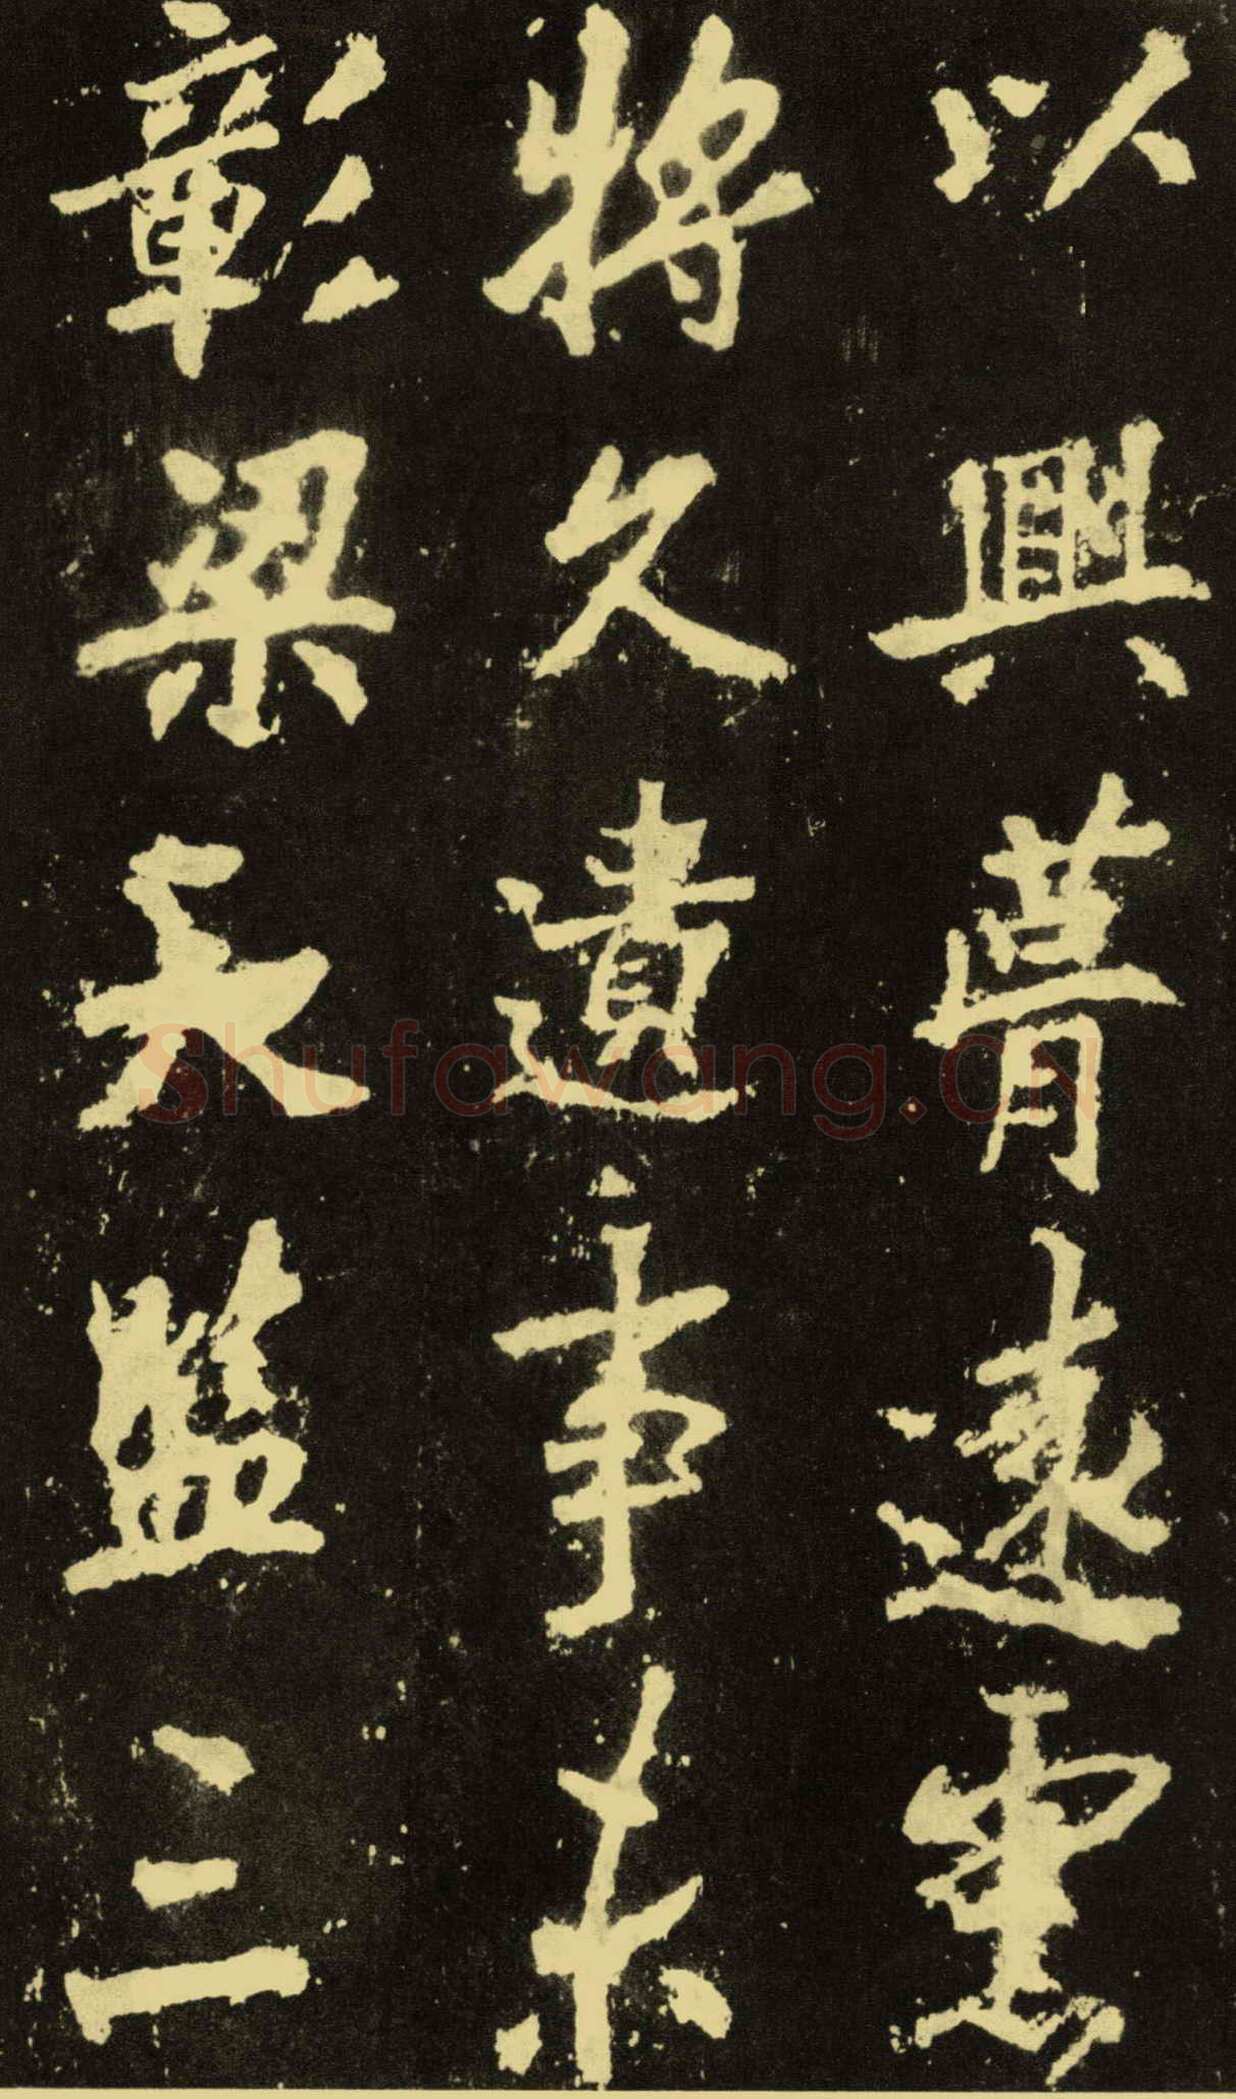 以興遠
將久遺事未
彰梁天監三
Shufawang.CN